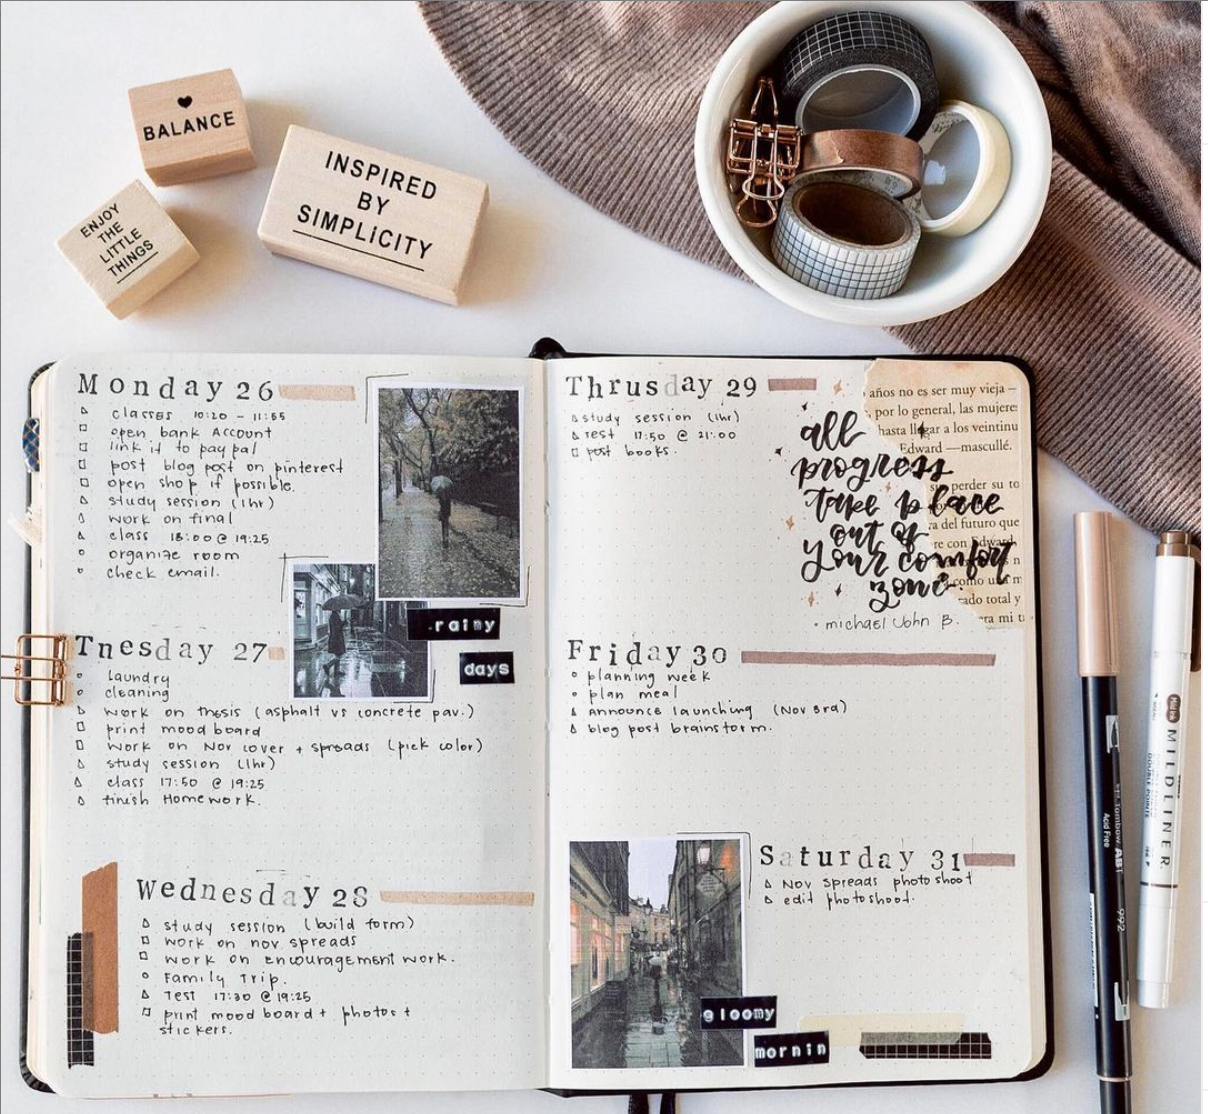 BALANCE
INSPIRED
BY
SIMPLiCITY
ENJOY
THE
LITTLE
THINGS
Monday 26
classes 10:20 - 11:55
open bank Account
link it to paypal
post blog post on pinterest
open shop if possible.
study session (1hr)
work on final
class 18:00 @ 19:25
organize room
check email.
rainy
days
Tnesday 27
laundry
cleaning
work on thesis (asphalt vs concrete pav.)
print mood board
work on Nov cover + spreads (pick color)
study session (1hr)
class 17:50 @ 19:25
finish Homework.
Wednesday 28
study session (build form)
work on nov spreads
work on encouragement work.
Family Trip.
Test 17:30 @ 19:25
print mood board + photos +
stickers.
Thrusday 29
study session (1hr)
Test 17:50 @ 21:00
post books.
años no es ser muy vieja —
por lo general, las mujeres
hasta llegar a los veintinu
Edward —mascullé.
perder su to
del futuro que
re con Edward
como una m
ado total y
era mi ti
all
progress
take place
out of
your comfort
zone.
michael John B.
Friday 30
planning week
plan meal
announce launching (Nov 3rd)
blog post brainstorm.
Saturday 31
Nov spreads photoshoot
edit photoshoot.
gloomy
mornin
Tombow ABT
Acid Free
992
Mild ink
MILDLINER
DOUBLE POINTED